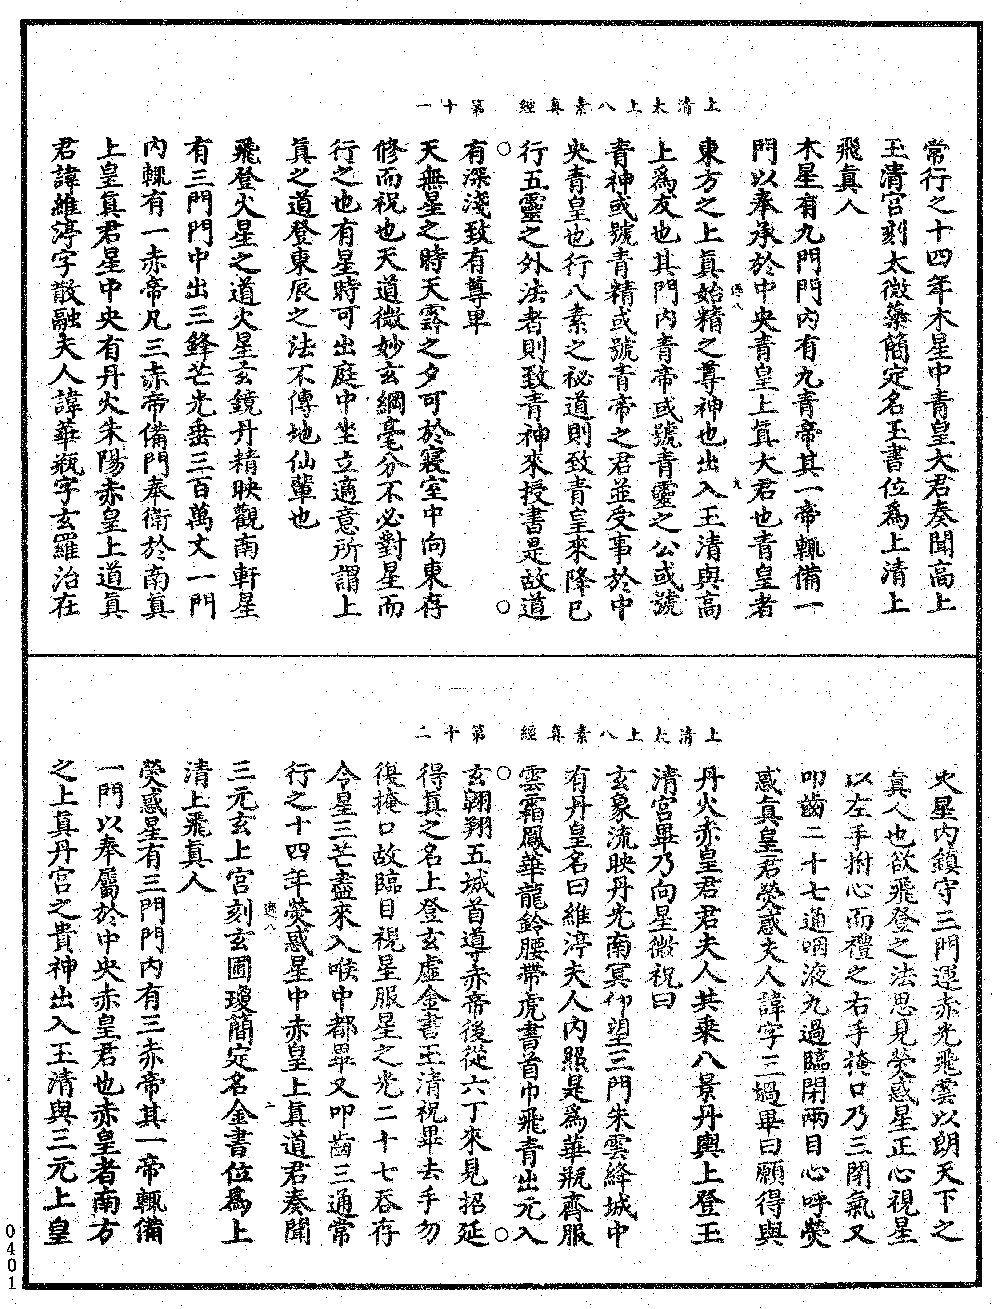 上清太上八素真經　第十一
常行之十四年木星中青皇大君奏聞高上
玉清宮刻太微蘂簡定名玉書位爲上清上
飛真人
木星有九門門內有九青帝其一帝輒備一
門以奉承於中央青皇上真大君也青皇者
東方之上真始精之尊神也出入玉清與高
上爲友也其門內青帝或號青靈之公或號
青神或號青精或號青帝之君並受事於中
央青皇也行八素之祕道則致青皇來降已
行五靈之外法者則致青神來授書是故道
有深淺致有尊卑
天無星之時天霧之夕可於寢室中向東存
修而祝也天道微妙玄綱毫分不必對星而
行之也有星時可出庭中坐立適意所謂上
真之道登東辰之法不傳地仙輩也
飛登火星之道火星玄鏡丹精映觀南軒星
有三門門中出三鋒芒光垂三百萬丈一門
內輒有一赤帝凡三赤帝備門奉衛於南真
上皇真君星中央有丹火朱陽赤皇上道真
君諱維渟字散融夫人諱華瓶字玄羅治在
上清太上八素真經　第十二
火星內鎮守三門運赤光飛雲以朗天下之
真人也欲飛登之法思見熒惑星正心視星
以左手拊心而禮之右手掩口乃三閉氣又
叩齒二十七通咽液九過臨閉兩目心呼熒
惑真皇君熒惑夫人諱字三過畢曰願得與
丹火赤皇君君夫人共乘八景丹輿上登玉
清宮畢乃向星微祝曰
玄象流映丹光南冥仰望三門朱雲絳城中
有丹皇名曰維渟夫人內照是爲華瓶齊服
雲霜鳳華龍鈴腰帶虎書首巾飛青出元入
玄翱翔五城首導赤帝後從六丁來見招延
得真之名上登玄虛金書玉清祝畢去手勿
復掩口故臨目視星服星之光二十七吞存
令星三芒盡來入喉中都畢又叩齒三通常
行之十四年熒惑星中赤皇上真道君奏聞
三元玄上宮刻玄圃瓊簡定名金書位爲上
清上飛真人
熒惑星有三門門內有三赤帝其一帝輒備
一門以奉屬於中央赤皇君也赤皇者南方
之上真丹宮之貴神出入玉清與三元上皇
0401